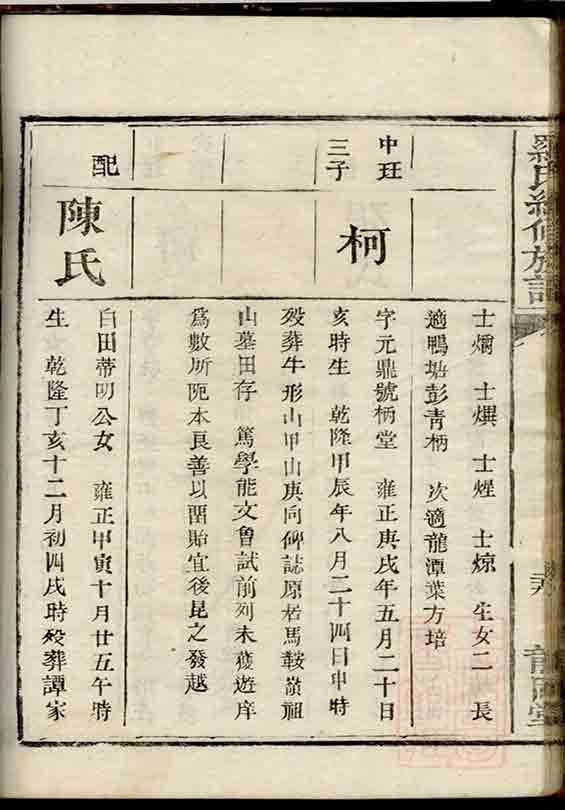 羅氏續修族譜
士燗 士熼 士煋 士婛 生女二 長
適鴨塘彭青柄 次適龍潭葉方培
中玨三子
柯
字元鼎號柄堂 雍正庚戌年五月二十日
亥時生 乾隆甲辰年八月二十四日申時
歿葬牛形山甲山庚向碑誌原若馬鞍嶺祖
山墓田存 篤學能文魯試前列未蒦遊庠
為數所阨本良善以啚貽宜後昆之發越
配
陳氏
白田蒂明公女 雍正甲寅十月廿五午時
生 乾隆丁亥十二月初四戌時歿葬譚家